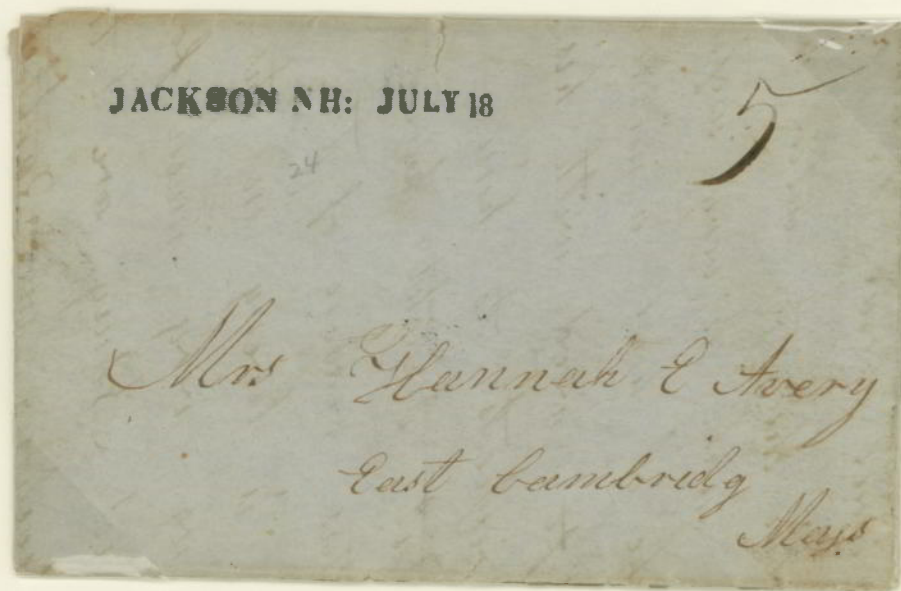 JACKSON NH: JULY 18
5
24
Mrs Hannah E Avery
East Cambridg
Mass